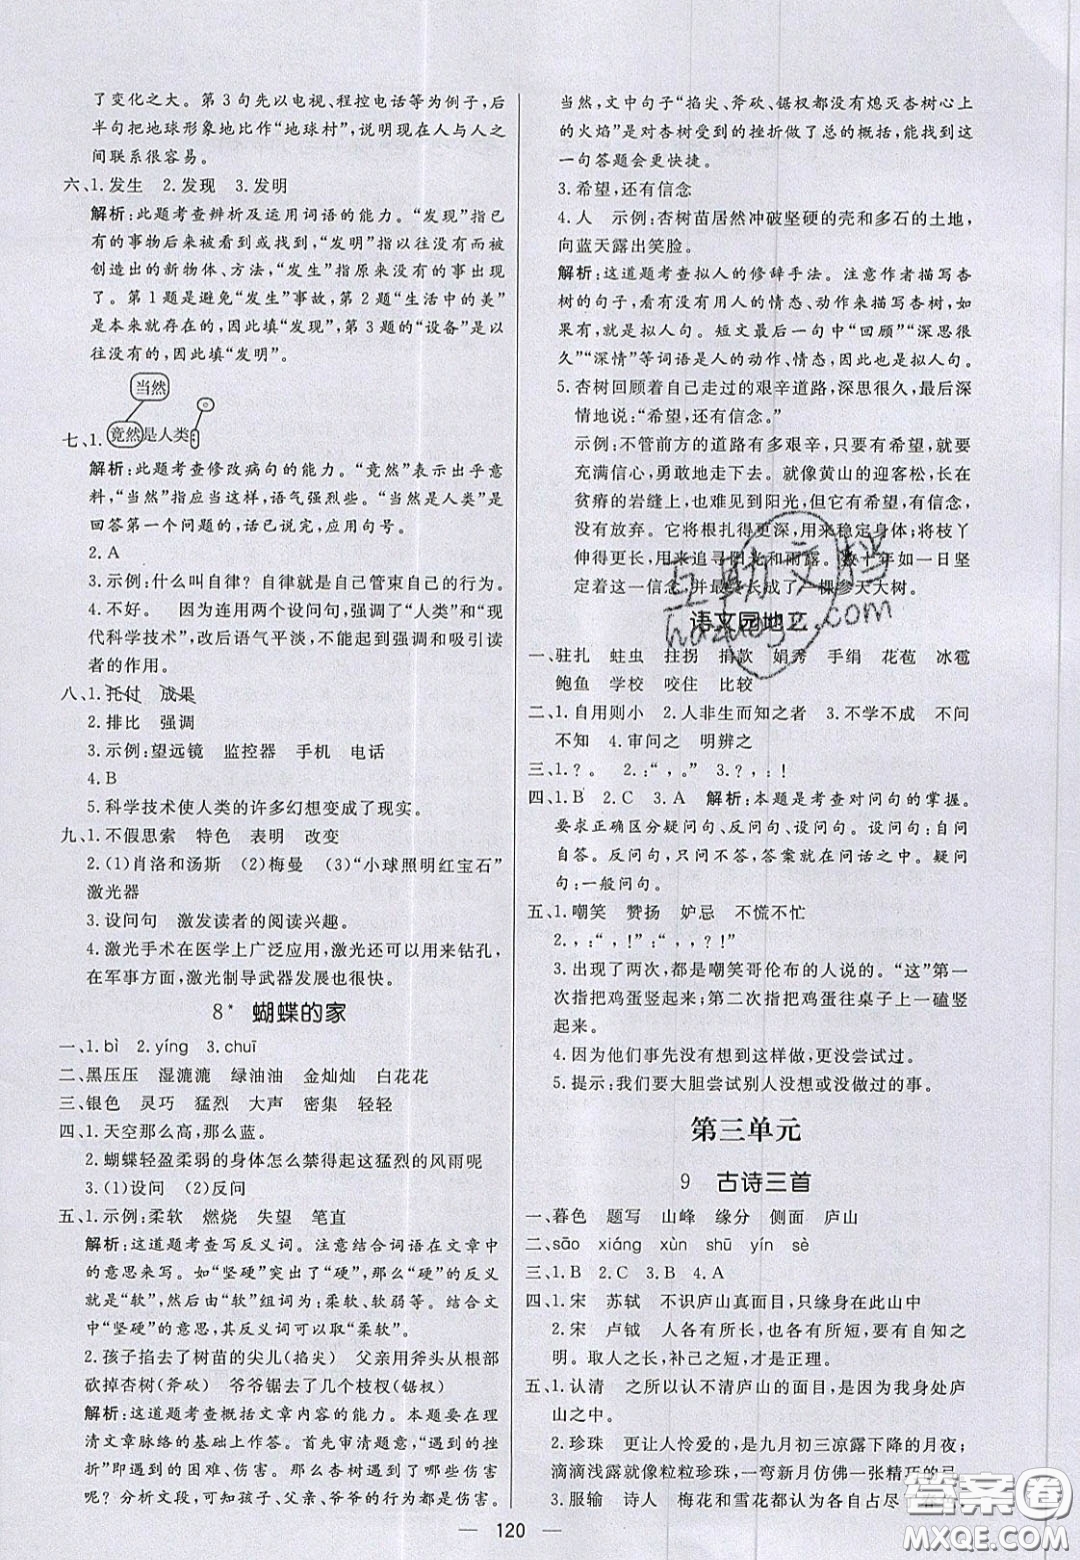 了变化之大。第3句先以电视、程控电话等为例子,后
半句把地球形象地比作“地球村”,说明现在人与人之
间联系很容易。
六、1.发生 2.发现 3.发明
解析:此题考查辨析及运用词语的能力。“发现”指已
有的事物后来被看到或找到,“发明”指以往没有而被
创造出的新物体、方法,“发生”指原来没有的事出现
了。第1题是避免“发生”事故,第2题“生活中的美”
是本来就存在的,因此填“发现”,第3题的“设备”是以
往没有的,因此填“发明”。
当然
七、1.竟然是人类:
解析:此题考查修改病句的能力。“竟然”表示出乎意
料,“当然”指应当这样,语气强烈些。“当然是人类”是
回答第一个问题的,话已说完,应用句号。
2.A
3.示例:什么叫自律?自律就是自己管束自己的行为。
4.不好。 因为连用两个设问句,强调了“人类”和“现
代科学技术”,改后语气平淡,不能起到强调和吸引读
者的作用。
八、1.托付 成果
2.排比 强调
3.示例:望远镜 监控器 手机 电话
4.B
5.科学技术使人类的许多幻想变成了现实。
九、1.不假思索 特色 表明 改变
2.(1)肖洛和汤斯 (2)梅曼 (3)“小球照明红宝石”
激光器
3.设问句 激发读者的阅读兴趣。
4.激光手术在医学上广泛应用,激光还可以用来钻孔,
在军事方面,激光制导武器发展也很快。
8* 蝴蝶的家
一、1.bì 2.yíng 3.chuī
二、黑压压 湿漉漉 绿油油 金灿灿 白花花
三、银色 灵巧 猛烈 大声 密集 轻轻
四、1.天空那么高,那么蓝。
2.蝴蝶轻盈柔弱的身体怎么禁得起这猛烈的风雨呢
3.(1)设问 (2)反问
五、1.示例:柔软 燃烧 失望 笔直
解析:这道题考查写反义词。注意结合词语在文章中
的意思来写。如“坚硬”突出了“硬”,那么“硬”的反义
就是“软”,然后由“软”组词为:柔软、软弱等。结合文
中“坚硬”的意思,其反义词可以取“柔软”。
2.孩子掐去了树苗的尖儿(掐尖) 父亲用斧头从根部
砍掉杏树(斧砍) 爷爷锯去了几个枝杈(锯杈)
解析:这道题考查概括文章内容的能力。本题要在理
清文章脉络的基础上作答。首先审清题意,“遇到的挫
折”即遇到的困难、伤害。那么杏树遇到了哪些伤害
呢?分析文段,可知孩子、父亲、爷爷的行为都是伤害。
当然,文中句子“掐尖、斧砍、锯杈都没有熄灭杏树心上
的火焰”是对杏树受到的挫折做了总的概括,能找到这
一句答题会更快捷。
3.希望,还有信念
4.人 示例:杏树苗居然冲破坚硬的壳和多石的土地,
向蓝天露出笑脸。
解析:这道题考查拟人的修辞手法。注意作者描写杏
树的句子,看有没有用人的情态、动作来描写杏树,如
果有,就是拟人句。短文最后一句中“回顾”“深思很
久”“深情”等词语是人的动作、情态,因此也是拟人句。
5.杏树回顾着自己走过的艰辛道路,深思很久,最后深
情地说:“希望,还有信念。”
示例:不管前方的道路有多艰辛,只要有希望,就要
充满信心,勇敢地走下去。就像黄山的迎客松,长在
贫瘠的岩缝上,也难见到阳光,但它有希望,有信念,
没有放弃。它将根扎得更深,用来稳定身体;将枝丫
伸得更长,用来追寻阳光和雨露。数十年如一日坚
定着这一信念,并最终长成了一棵参天大树。
语文园地二
一、驻扎 蛀虫 拄拐 捐款 娟秀 手绢 花苞 冰雹
鲍鱼 学校 咬住 比较
二、1.自用则小 2.人非生而知之者 3.不学不成 不问
不知 4.审问之 明辨之
三、1.?。 2.:“,。” 3.?,:!
四、1.B 2.C 3.A 解析:本题是考查对问句的掌握。
要求正确区分疑问句、反问句、设问句。设问句:自问
自答。反问句,只问不答,答案就在问话之中。疑问
句:一般问句。
五、1.嘲笑 赞扬 妒忌 不慌不忙
2.,:“,!”:“,,?!”
3.出现了两次,都是嘲笑哥伦布的人说的。“这”第一
次指把鸡蛋竖起来;第二次指把鸡蛋往桌子上一磕竖
起来。
4.因为他们事先没有想到这样做,更没尝试过。
5.提示:我们要大胆尝试别人没想或没做过的事。
第三单元
9 古诗三首
一、暮色 题写 山峰 缘分 侧面 庐山
二、sāo xiáng xùn shū yín sè
三、1.B 2.C 3.B 4.A
四、1.宋 苏轼 不识庐山真面目,只缘身在此山中
2.宋 卢钺 人各有所长,也各有所短,要有自知之
明。取人之长,补己之短,才是正理。
五、1.认清 之所以认不清庐山的面目,是因为我身处庐
山之中。
2.珍珠 更让人怜爱的,是九月初三凉露下降的月夜;
滴滴浅露就像粒粒珍珠,一弯新月仿佛一张精巧的弓。
3.服输 诗人 梅花和雪花都认为各自占尽
120
互助文档
hazuoye.com
答案圈
MXQE.COM